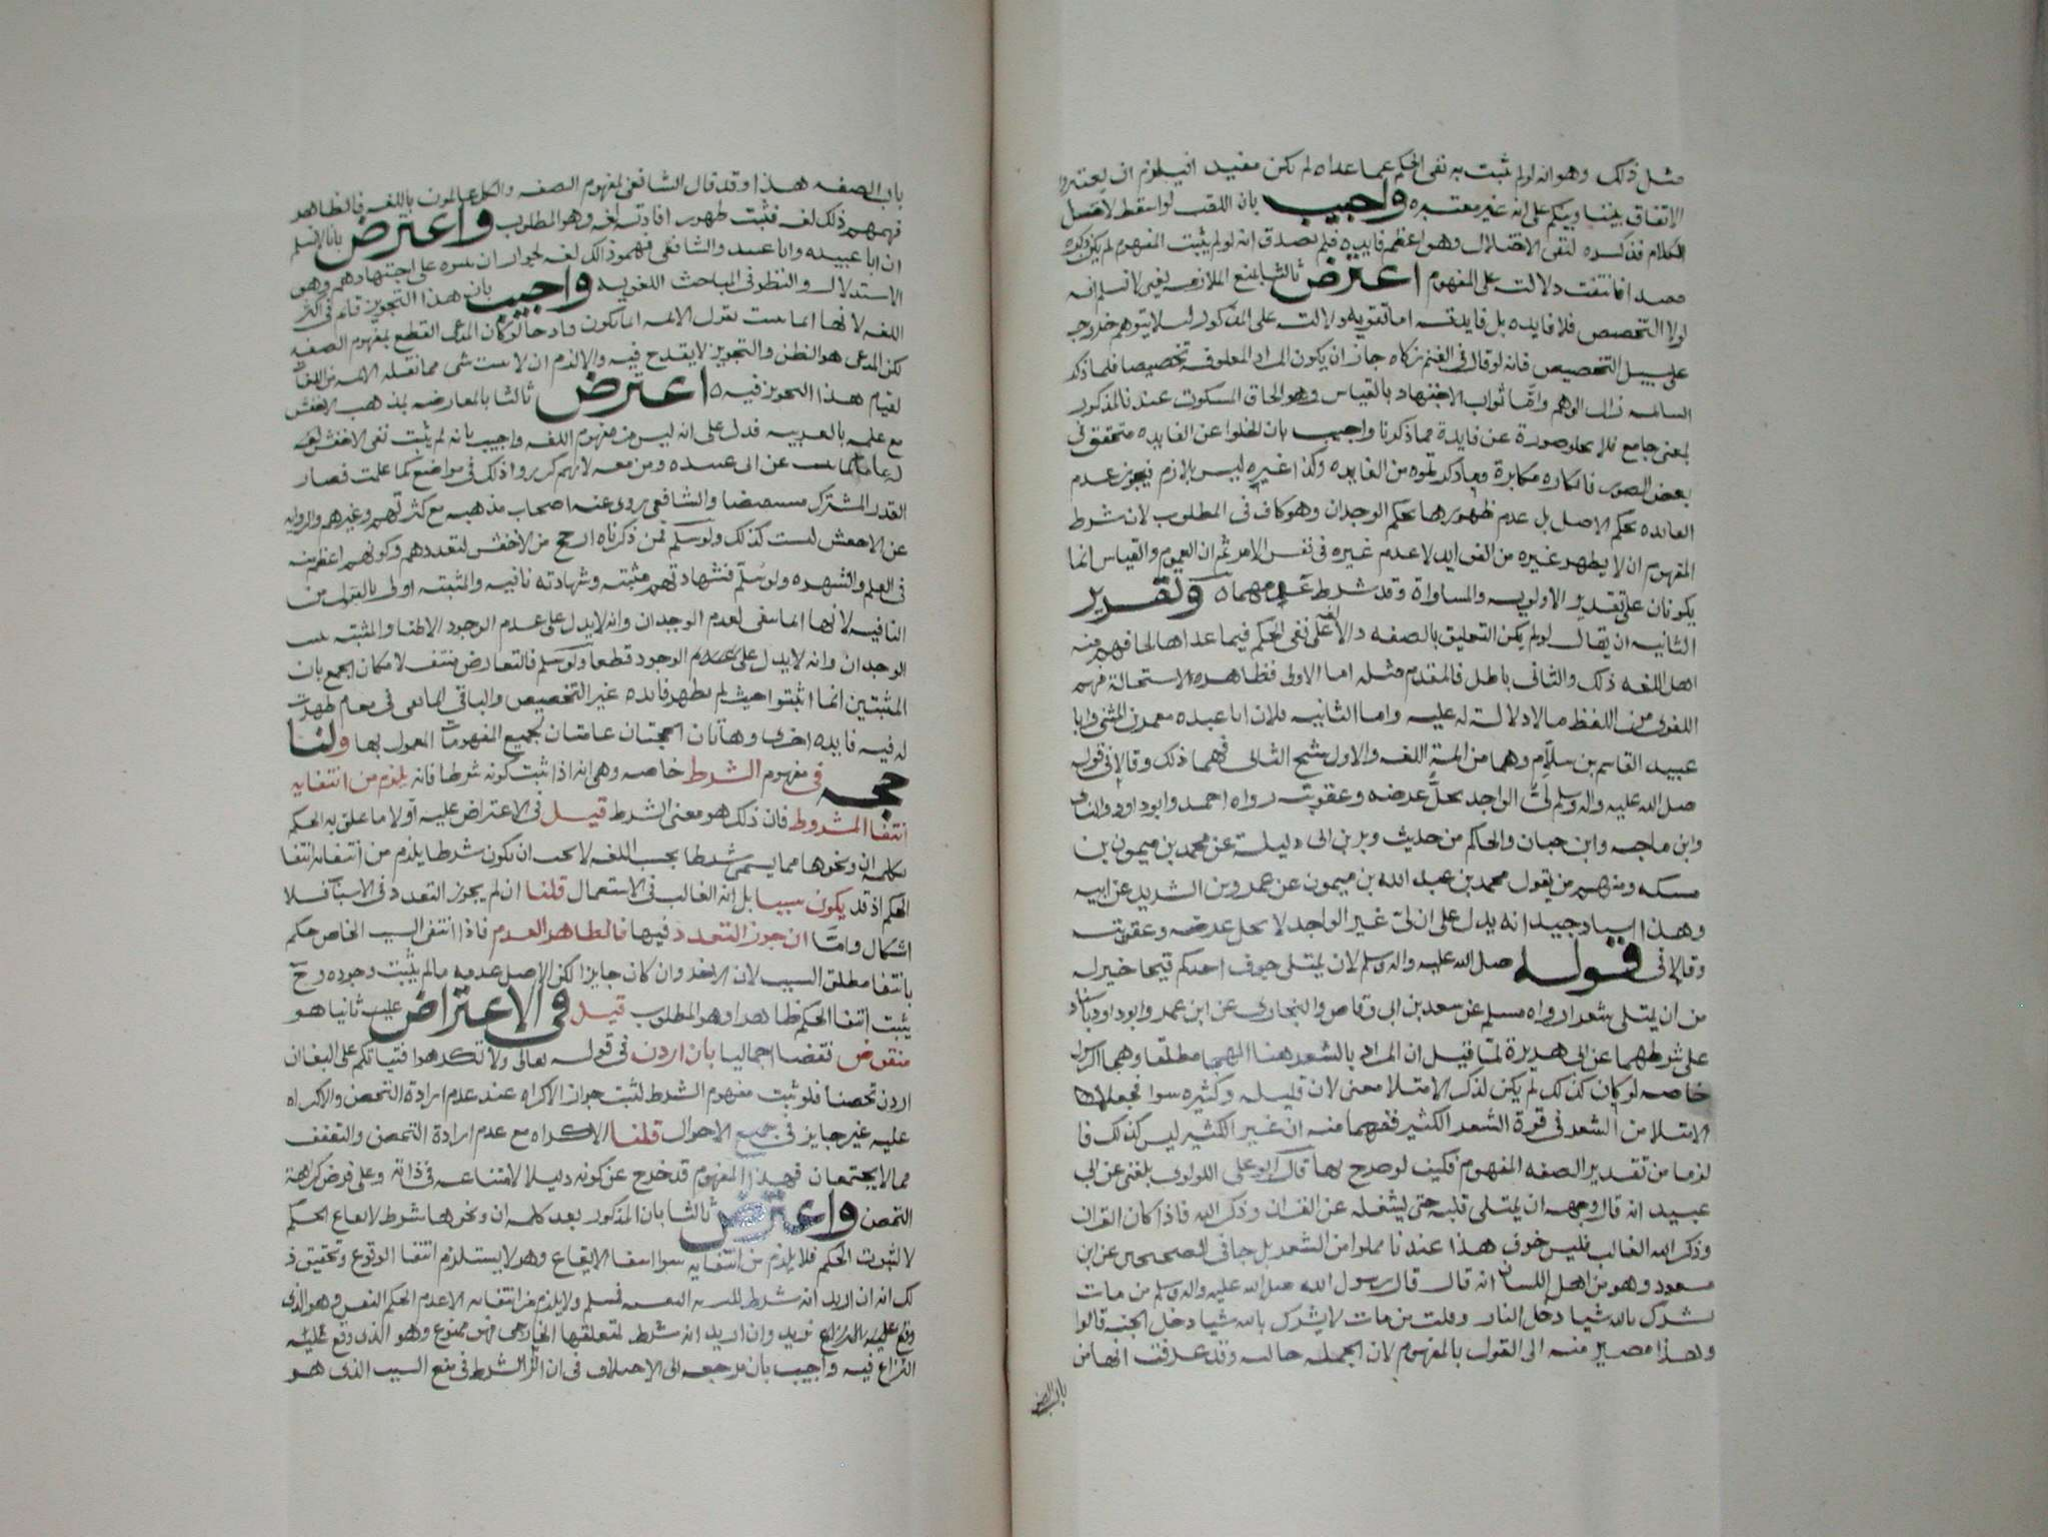 مثل ذلك وهو انه لو لم يثبت به نفى الحكم عما عداه لم يكن مفيدا فيلزم ان يعتبروا
الاتفاق بيننا وبينكم على انه غير معتبره واجيب بان اللقب لو اسقط لاختل
الكلام فذكره لنفى الاختلال وهو اعظم فايده فلم يصدق انه لو لم يثبت المفهوم لم يكن ذكره
مفيدا فانتفت دلالته على المفهوم اعترض ثالثا بمنع الملازمه يعنى لا نسلم انه
لولا التخصيص فلا فايده بل فايدته اما تقويه دلالته على المذكور ليلا يتوهم خروجه
على سبيل التخصيص فانه لو قال فى الغنم زكاه جاز ان يكون المراد المعلوفه تخصيصا فلما ذكر
السايمه زال الوهم واما ثواب الاجتهاد بالقياس وهو الحاق المسكوت عنه بالمذكور
لمعنى جامع فلا يخلو صورة عن فايدة مما ذكرنا واجيب بان الخلوا عن الفايده متحقق فى
بعض الصور فانكاره مكابرة وما ذكرتموه من الفايده وكذا غيره ليس بلازم فيجوز عدم
الفايده بحكم الاصل بل عدم ظهورها بحكم الوجدان وهو كاف فى المطلوب لان شرط
المفهوم ان لا يظهر غيره من الفوايد لا عدم غيره فى نفس الامر ثم ان العموم والقياس انما
يكونان على تقدير الاولويه والمساواة وقد شرط عدمهما ٥ وتقرير
الثانيه ان يقال لو لم يكن التعليق بالصفه دالا لغة على نفى الحكم فيما عداها لما فهم منه
اهل اللغه ذلك والثانى باطل فالمقدم مثله اما الاولى فظاهره لاستحالة فهم
اللغوى من اللفظ ما لا دلالة له عليه واما الثانيه فلان ابا عبيده معمر بن المثنى وابا
عبيد القاسم بن سلام وهما من ايمة اللغه والاول شيخ الثانى فهما ذلك وقالا فى قوله
صلى الله عليه واله وسلم لىّ الواجد يحلّ عرضه وعقوبته رواه احمد وابو داود والنساى
وابن ماجه وابن حبان والحاكم من حديث وبر بن ابى دليلة عن محمد بن ميمون بن
مسيكه ومنهم من يقول محمد بن عبد الله بن ميمون عن عمرو بن الشريد عن ابيه
وهذا اسناد جيد انه يدل على ان لىّ غير الواجد لا يحل عرضه وعقوبته
وقالا فى قوله صلى الله عليه واله وسلم لان يمتلى جوف احدكم قيحا خير له
من ان يمتلى شعرا رواه مسلم عن سعد بن ابى وقاص والبخارى عن ابن عمر وابو داود باسناد
على شرطهما عن ابى هريرة لمّا قيل ان المراد بالشعر هنا الهجا مطلقا وهجا الرسول
خاصه لو كان كذلك لم يكن لذكر الامتلا معنى لان قليله وكثيره سوا فجعلا
الامتلا من الشعر فى قوة الشعر الكثير ففهما منه ان غير الكثير ليس كذلك فا
لزما من تقدير الصفه المفهوم فكيف لو صرح بها قال ابو على اللولوى بلغنى عن ابى
عبيد انه قال وجهه ان يمتلى قلبه حتى يشغله عن القران وذكر الله فاذا كان القران
وذكر الله الغالب فليس جوف هذا عندنا مملوا من الشعر بل جا فى الصحيحين عن ابن
مسعود وهو من اهل اللسان انه قال قال رسول الله صلى الله عليه واله وسلم من مات
يشرك بالله شيا دخل النار وقلت من مات لا يشرك بالله شيا دخل الجنه قالوا
وهذا مصير منه الى القول بالمفهوم لان الجمله حاليه وقد عرفت انها من
باب الصفه
باب الصفه هذا وقد قال الشافعى لمفهوم الصفه والكل عالمون باللغه فالظاهر
فهمهم ذلك لغه فثبت ظهور افادته لغه وهو المطلوب واعترض بانا لا نسلم
ان ابا عبيده وابا عبيد والشافعى فهموا ذلك لغه لجواز ان بنوه على اجتهادهم وهو
الاستدلال والنظر فى المباحث اللغويه واجيب بان هذا التجويز قايم فى اكثر
اللغه لانها انما تثبت بقول الايمه انما يكون قادحا لو كان المدعى القطع بمفهوم الصفه
لكن المدعى هو الظن والتجويز لا يقدح فيه والا لزم ان لا يثبت شى مما نقله الايمه من اللغات
لقيام هذا التجويز فيه ٥ اعترض ثالثا بالمعارضه بمذهب الاخفش
مع علمه بالعربيه فدل على انه ليس من مفهوم اللغه واجيب بانه لم يثبت نفى الاخفش لغه
كما ثبت عن ابى عبيده ومن معه لانهم كرروا ذلك فى مواضع كما علمت فصار
القدر المشترك مستفيضا والشافعى روى عنه اصحاب مذهبه مع كثرتهم وغيرهم والروايه
عن الاخفش ليست كذلك ولو سلم فمن ذكرناه ارجح من الاخفش لتعددهم وكونهم اعظم منه
فى العلم والشهره ولو سُلّم فشهادتهم مثبته وشهادته نافيه والمثبته اولى بالقبول من
النافيه لانها انما تنفى لعدم الوجدان وانه لا يدل على عدم الوجود الا ظنا والمثبته تثبت
الوجدان وانه لا يدل على عدم الوجود قطعا ولو سلم فالتعارض منتف لامكان الجمع بان
المثبتين انما اثبتوا حيث لم يظهر فايده غير التخصيص والباقى انما نفى فى مقام ظهرت
له فيه فايده اخرى وهاتان الحجتان عامتان لجميع المفهومات المعمول بها ولنا
حجه فى مفهوم الشرط خاصه وهى انه اذا ثبت كونه شرطا فانه يلزم من انتفايه
انتفا المشروط فان ذلك هو معنى الشرط قيل فى الاعتراض عليه اولا ما علق به الحكم
بكلمة ان ونحوها مما يسمى شرطا بحسب اللغه لا يجب ان يكون شرطا يلزم من انتفايه انتفا
الحكم اذ قد يكون سببا بل انه الغالب فى الاستعمال قلنا ان لم يجوز التعدد فى الاسباب فلا
اشكال وامّا ان جوز التعدد فيها فالظاهر العدم فاذا انتفى السبب الخاص حكم
بانتفا مطلق السبب لان الاخر وان كان جايزا لكن الاصل عدمه ما لم يثبت وجوده وح
يثبت انتفا الحكم ظاهرا وهو المطلوب قيل فى الاعتراض عليه ثانيا هو
منقوض نقضا اجماليا بان اردن فى قوله تعالى ولا تكرهوا فتياتكم على البغا ان
اردن تحصنا فلو ثبت مفهوم الشرط لثبت جواز الاكراه عند عدم ارادة التحصن والاكراه
عليه غير جايز فى جميع الاحوال قلنا الاكراه مع عدم ارادة التحصن والتعفف
مما لا يجتمعان فهذا المفهوم قد خرج عن كونه دليلا لامتناعه فى ذاته وعلى فرض كراهة
التحصن واعترض ثالثا بان المذكور بعد كلمه ان ونحوها شرط لايقاع الحكم
لا لثبوت الحكم فلا يلزم من انتفايه سوا انتفا الايقاع وهو لا يستلزم انتفا الوقوع وتحقيق ذ
لك انه ان اريد انه شرط للنسبه النفسيه فمسلم ولا يلزم من انتفايه الا عدم الحكم النفسى وهو الذى
وقع عليه النزاع نريد وان اريد انه شرط لمتعلقها الخارجى فهو ممنوع وهو الذى وقع عليه
النزاع فيه واجيب بان مرجعه الى الاختلاف فى ان اثر الشرط فى منع السبب الذى هو